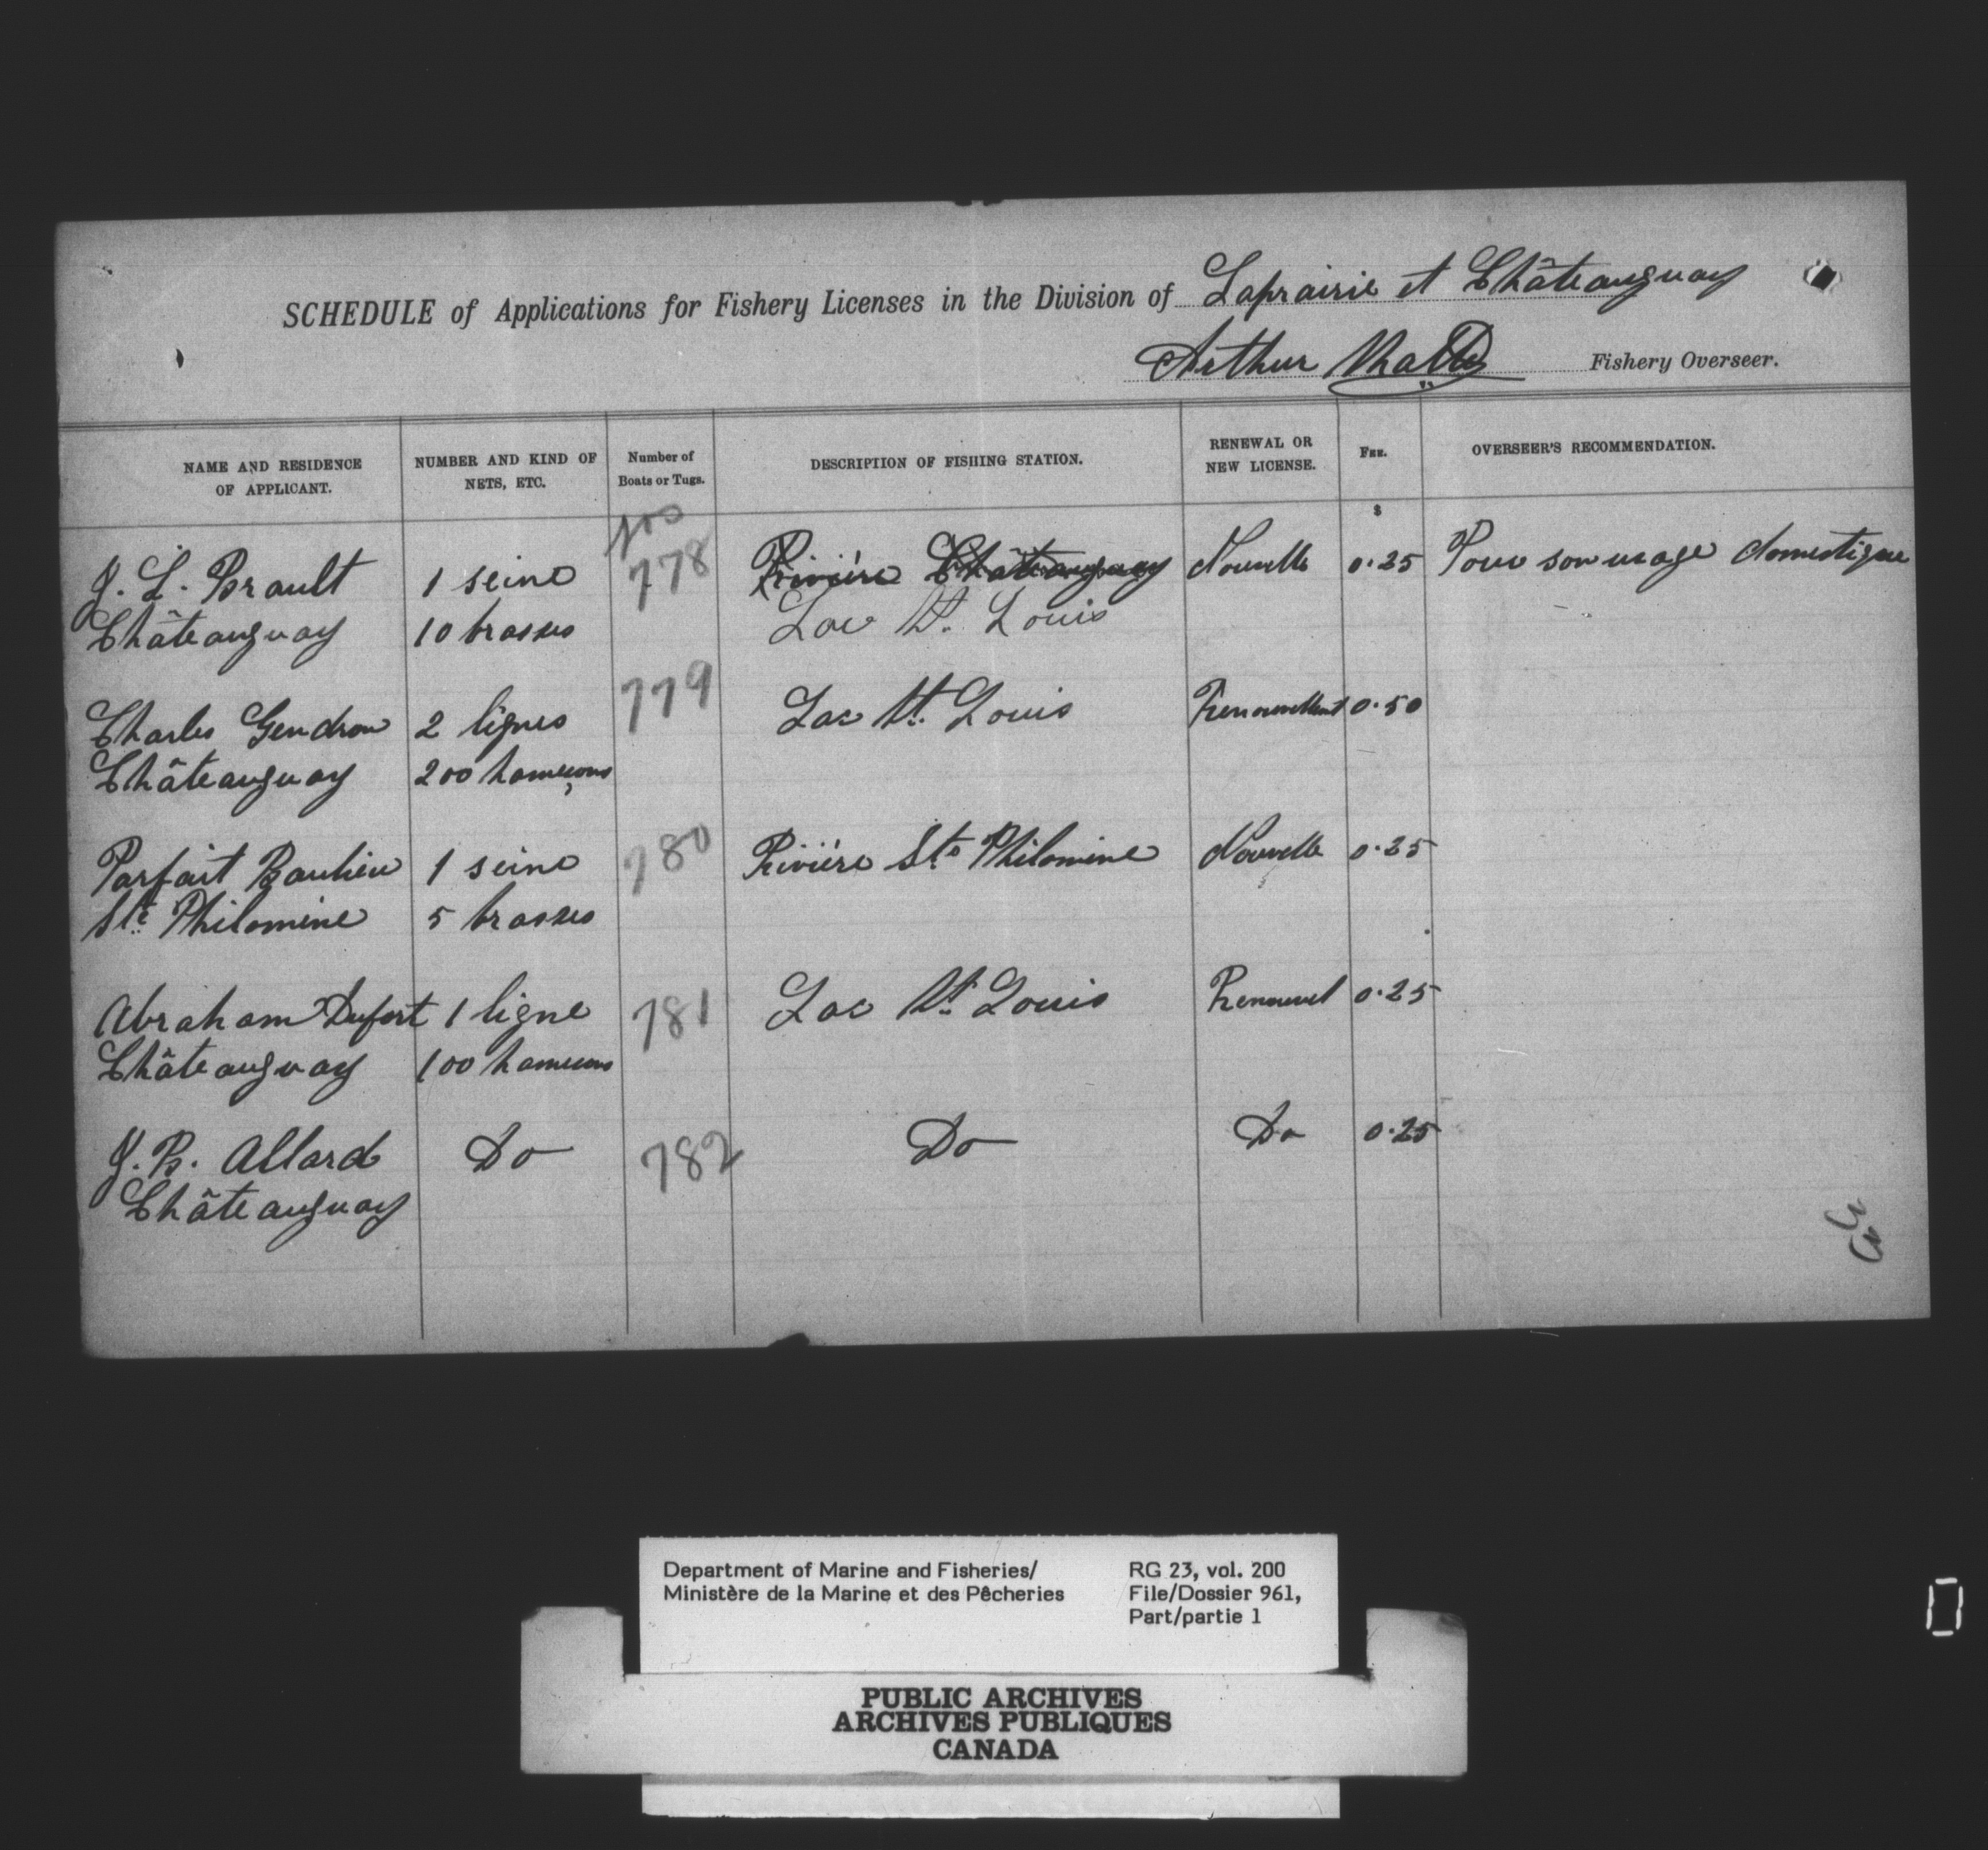 SCHEDULE of Applications for Fishery Licenses in the Division of Laprairie et Châteauguay
Arthur Fishery Overseer.
NAME AND RESIDENCE OF APPLICANT. NUMBER AND KIND OF NETS, ETC. Number of Boats or Tugs. DESCRIPTION OF FISHING STATION. RENEWAL OR NEW LICENSE. FEE. OVERSEER'S RECOMMENDATION.
$
J. L. Brault 1 seine 778 Rivière Châteauguay Nouvelle 0.25 Pour son usage domestique
Châteauguay 10 brasses Lac St. Louis
Charles Gendron 2 lignes 779 Lac St. Louis 0.50
Châteauguay 200 hameçons
Parfait 1 seine 780 Rivière Ste Philomine Nouvelle 0.25
Ste Philomine 5 brasses
Abraham Dufort 1 ligne 781 Lac St. Louis Renouvel 0.25
Châteauguay 100 hamecons
J. B. Allard Do 782 Do Do 0.25
Châteauguay
Department of Marine and Fisheries/ RG 23, vol. 200
Ministère de la Marine et des Pêcheries File/Dossier 961,
Part/partie 1
PUBLIC ARCHIVES
ARCHIVES PUBLIQUES
CANADA